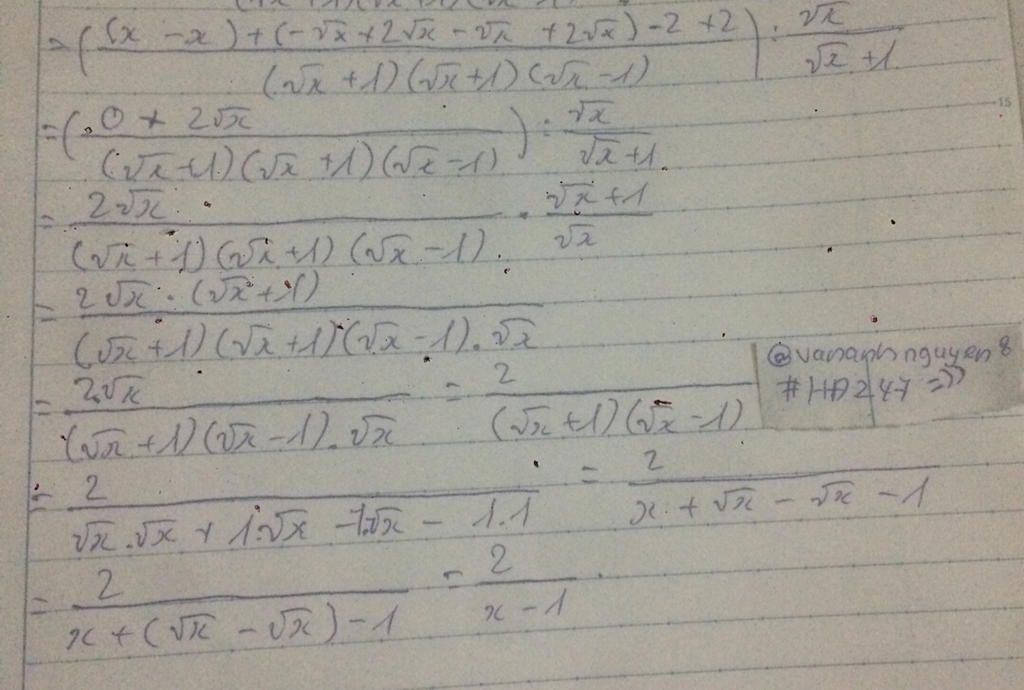 = ( (x - x) + (-√x + 2√x - √x + 2√x) - 2 + 2 / (√x + 1)(√x + 1)(√x - 1) ) : √x / √x + 1
15
= ( 0 + 2√x / (√x + 1)(√x + 1)(√x - 1) ) : √x / √x + 1
= 2√x / (√x + 1)(√x + 1)(√x - 1) . √x + 1 / √x
= 2√x . (√x + 1) / (√x + 1)(√x + 1)(√x - 1) . √x
= 2√x / (√x + 1)(√x - 1) . √x = 2 / (√x + 1)(√x - 1)
@vananhnguyen8
#HĐ247 =))
= 2 / √x . √x + 1.√x - 1.√x - 1.1 = 2 / x + √x - √x - 1
= 2 / x + (√x - √x) - 1 = 2 / x - 1 .